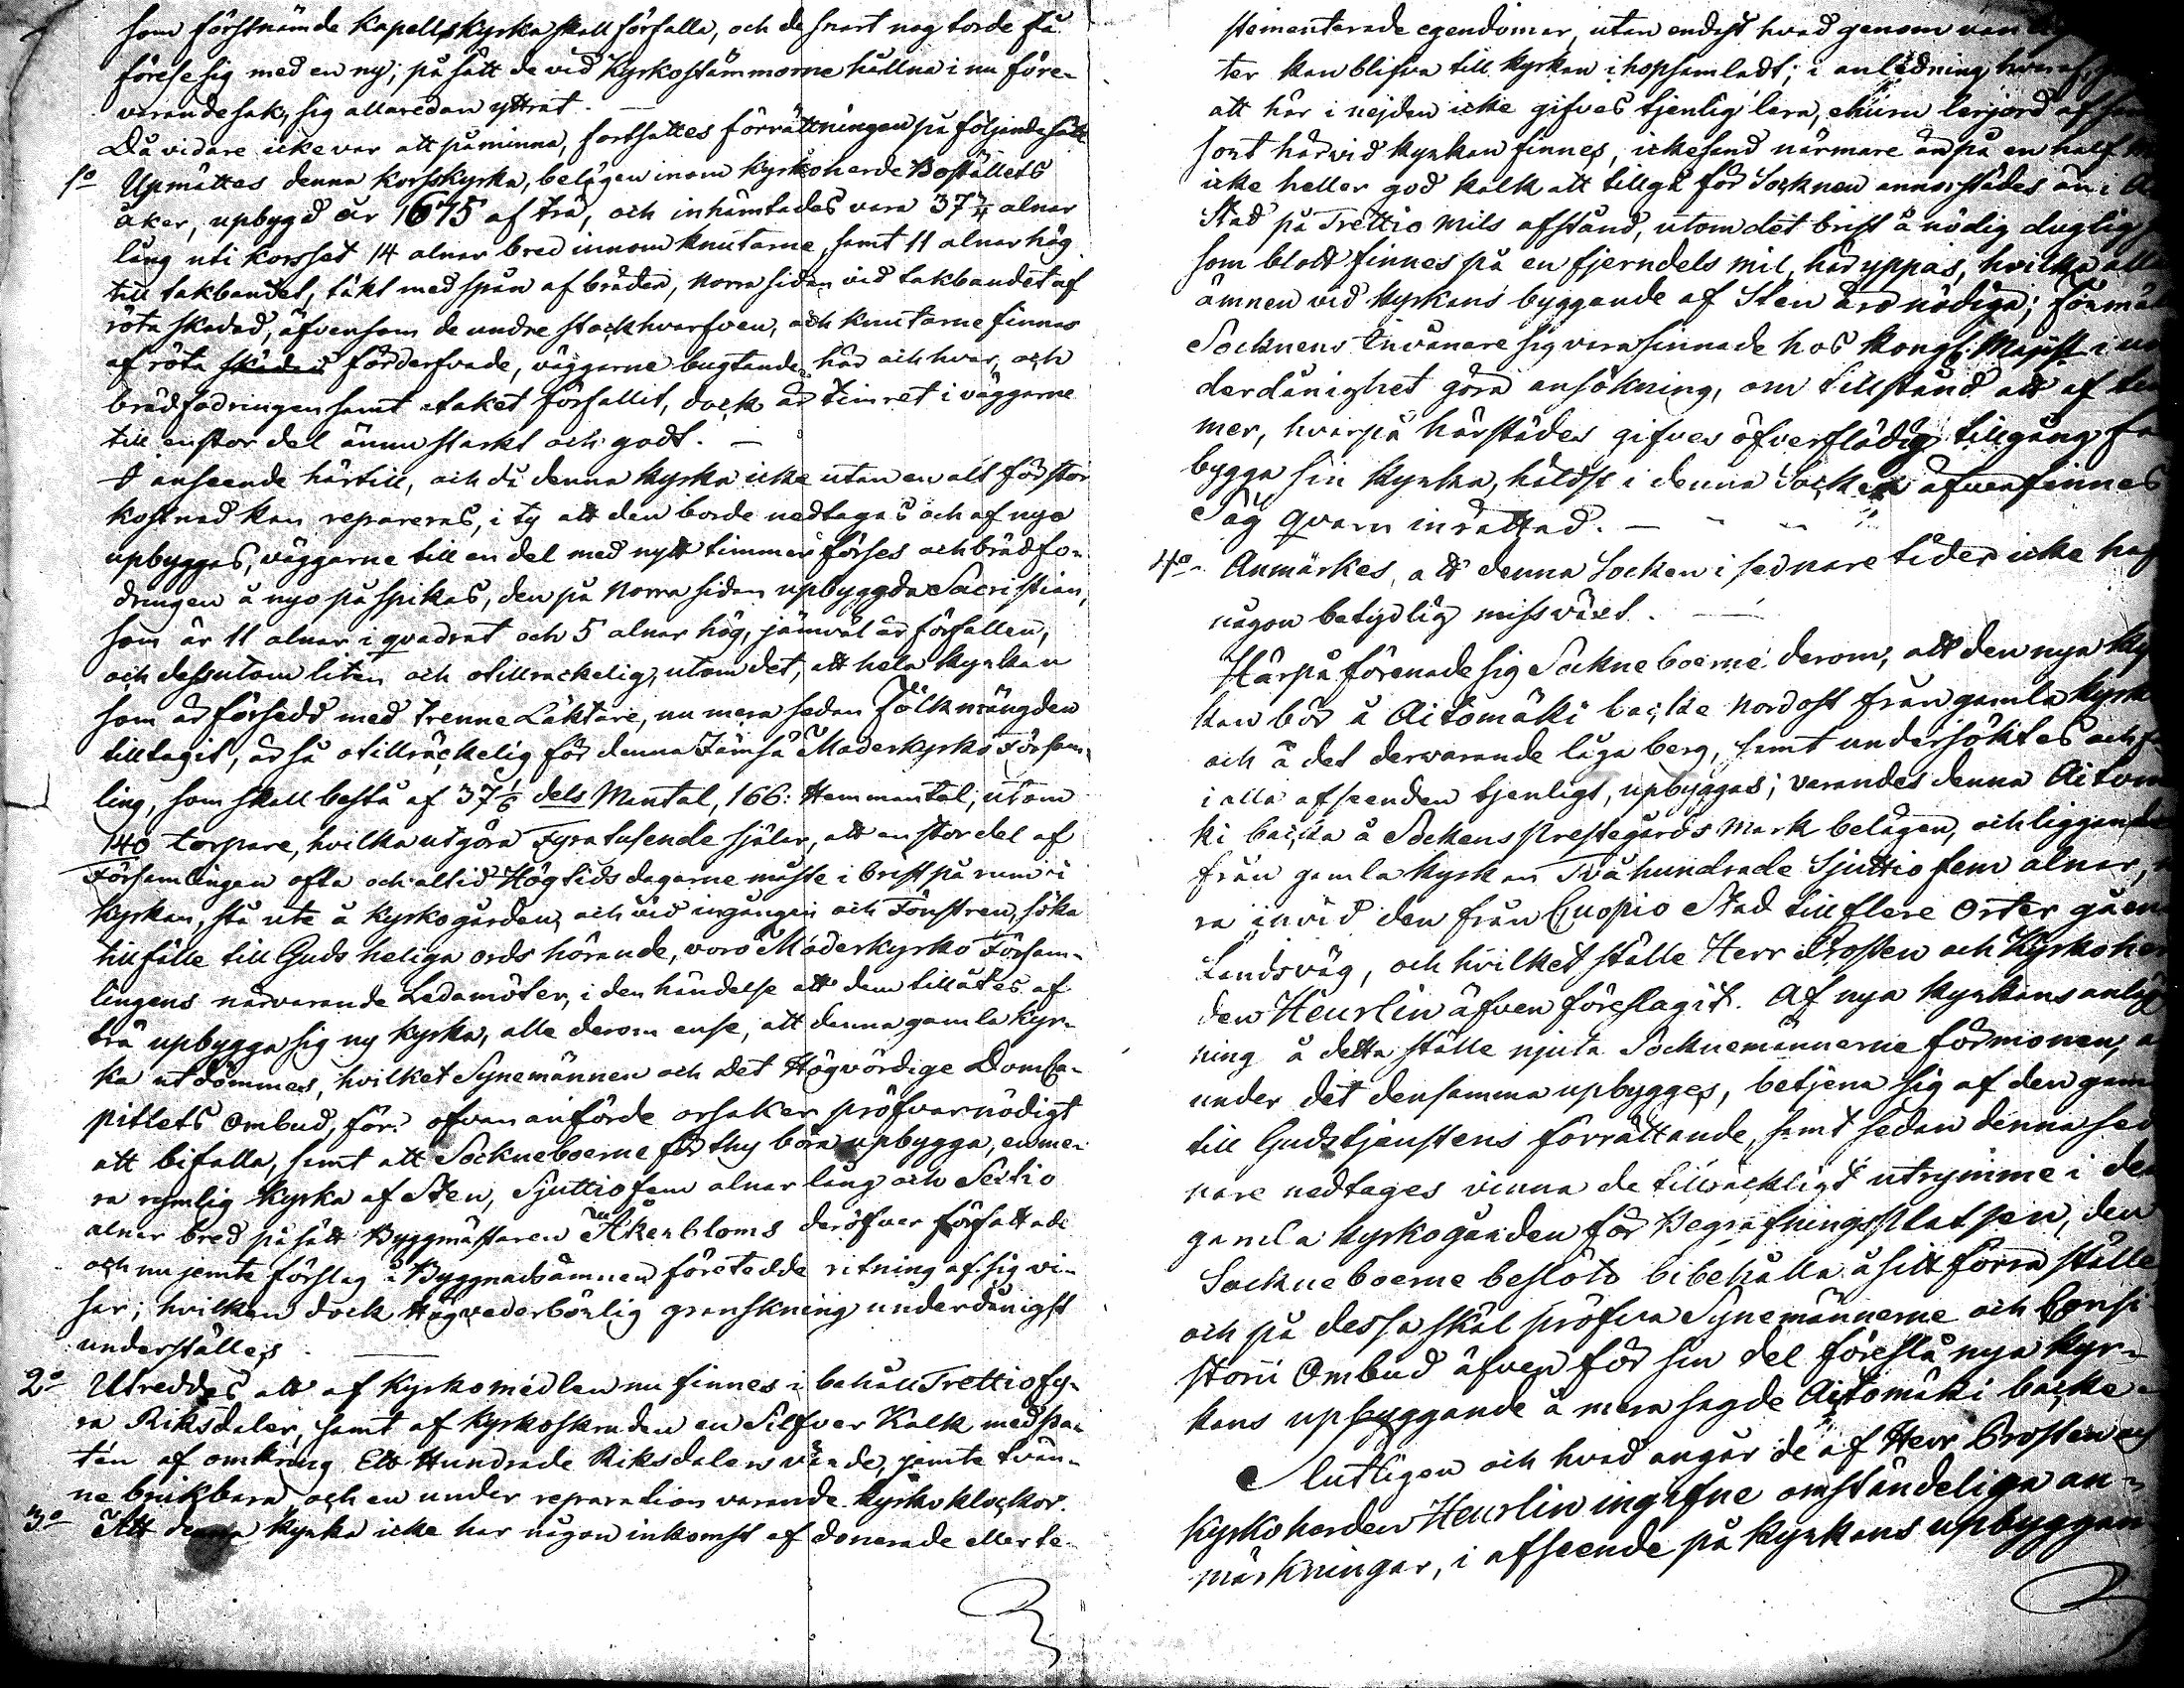 som förstnämde Kapellskyrka skall förfalla, och de snart nog torde få
förese sig med en ny; på sätt de vid Kyrkostämmorne hållna i nu före-
varande sak, sig allaredan yttrat.
Då vidare icke var att påminna, fortsattes förrättningen på följande sätt
1o Upmättes denna korskyrka, belägen inom Kyrkoherde Boställets
åker, upbygd år 1675 af trä, och inhämtades vara 37 3/4 alnar
lång uti korsset 14 alnar bred innom knutarne, samt 11 alnar hög
till takbandet, täkt med spån af bräder, norra sidan vid takbandet af
röta skadad, äfvensom de undre stockhvarfven, och knutarne finnas
af röta förderfvade, väggarne bugtande här och hvar, och
brädfodringen samt taket förfallit, dock är timret i väggarne
till en stor del ännu starkt och godt. —
I anseende härtill, och då denna kyrka icke utan en alt för stor
kostnad kan repareras, i ty att den borde nedtagas och af nyo
upbyggas, väggarne till en del med nytt timmer förses och brädfo-
dringen å nyo påspikas, den på norra sidan upbyggda Sacristian,
som är 11 alnar i qvadrat och 5 alnar hög, jämväl är förfallen,
och dessutom liten och otillräckelig, utom det, att hela kyrkan
som är försedd med trenne Läktare, nu mera sedan Folkmängden
tilltagit, är så otillräckelig för denna Jämsä Moderkyrko Försam-
ling, som skall bestå af 37 1/6 dels Mantal, 166: Hemmantal, utom
140 torpare, hvilka utgöra Fyratusende själar, att en stor del af
Församlingen ofta och altid Högtidsdagarne måste i brist på rum i
kyrkan, stå ute å kyrkogården, och vid ingången och Fönstren, söka
tillfälle till Guds heliga ords hörande, voro Moderkyrko Försam-
lingens närvarande Ledamöter, i den händelse att dem tillåtes af
trä upbygga sig ny kyrka, alle derom ense, att denna gamla kyr-
ka utdömmes, hvilket Synemännen och det Högvördige DomCa-
pitlets Ombud, för ofvananförde orsaker pröfvar nödigt
att bifalla, samt att Sockneboerne för thy böra upbygga, en me-
ra rymlig kyrka af Sten, Sjuttiofem alnar lång och Sextio
alnar bred på sätt Byggmästaren Åkerbloms deröfver författade
och nu jemte förslag å Byggnadsämnen företedde ritning af sig vi-
sar; hvilken dock Högvederbörlig granskning underdånigst
underställes. —
2o Utreddes att af kyrkomedlen nu finnes i behåll Trettiofy-
ra Riksdaler, samt af kyrkoskruden en Silfver Kalk med pa-
tén af omkring Ett Hundrade Riksdalers värde, jämte tvän-
ne brukbara och en under reparation varande kyrkoklockor.
3o Att denna kyrka icke har någon inkomst af donerade eller te-
stementerade egendomar, utan endast hvad genom
ter kan blifva till kyrkan ihopsamladt; i anledning hvaraf
att här i nejden icke gifves tjenlig lera, ehuru lerjord af
sort härvid kyrkan finnes, icke sand närmare än på en half
icke heller god kalk att tillgå för Socknen annorstädes än i
Stad på Trettio mils afstånd, utom det brist å nödig duglig
som blott finnes på en fjerndels mil, här yppas, hvilka alla
ämnen vid kyrkans byggande af Sten äro nödiga; förmäl
Socknens Invånare sig vara sinnade hos Kongl: Majst i un
derdånighet göra ansökning, om tillstånd att af tim
mer, hvarpå härstädes gifves öfverflödig tillgång få
bygga sin kyrka, häldst i denna Socken äfven finnes
Såg qvarn inrättad. —
4o Anmärkes, att denna Socken i sednare tider icke haf
någon betydlig missväxt. —
Härpå förenade sig Sockneboerne derom, att den nya ky
kan bör å Aitomäki backe nordost från gamla kyrk
och å det dervarande låga berg, samt undersöktes och
i alla afseenden tjenligt, upbyggas; varandes denna Aitom
ki backa å Sockens Prestegårds mark belägen, och liggande
från gamla kyrkan Tvåhundrade Sjuttio fem alnar,
ra invid den från Cuopio Stad till flere Orter gåen
Landsväg, och hvilket ställe Herr Prosten och Kyrkoher
den Heurlin äfven föreslagit. Af nya kyrkans anläg
ning å detta ställe njuta Socknemännerne förmonen,
under det densamma upbygges, betjena sig af den gam
till Gudstjenstens förrättande, samt sedan denna sed
nare nedtages vinna de tillräckligt utrymme i den
gamla kyrkogården för Begrafningsplatsen, den
Sockneboerne beslöto bibehålla å sitt förra ställe
och på dessa skäl pröfva Synemännerne och Consi
storii Ombud äfven för sin del föreslå nya kyr-
kans upbyggande å mera sagde Aitomäki backe.
Slutligen och hvad angår de af Herr Prosten och
Kyrkoherden Heurlin ingifne omständeliga an-
märkningar, i afseende på Kyrkans upbyggan